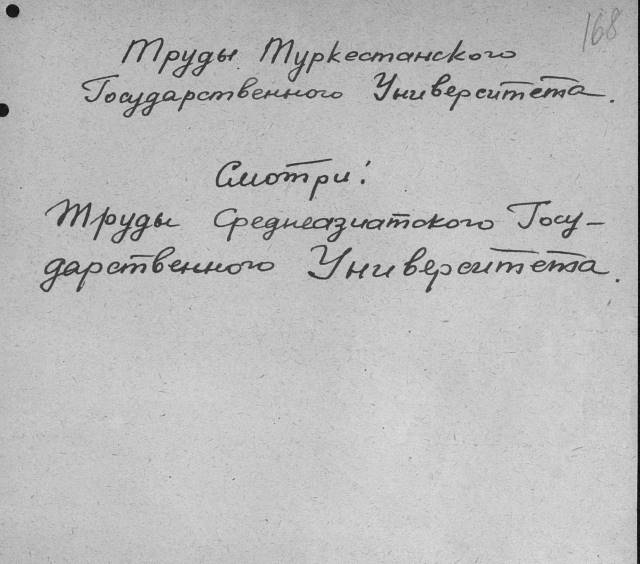 168
Труды Туркестанского
Государственного Университета.
Смотри:
Труды Среднеазиатского Госу-
дарственного Университета.